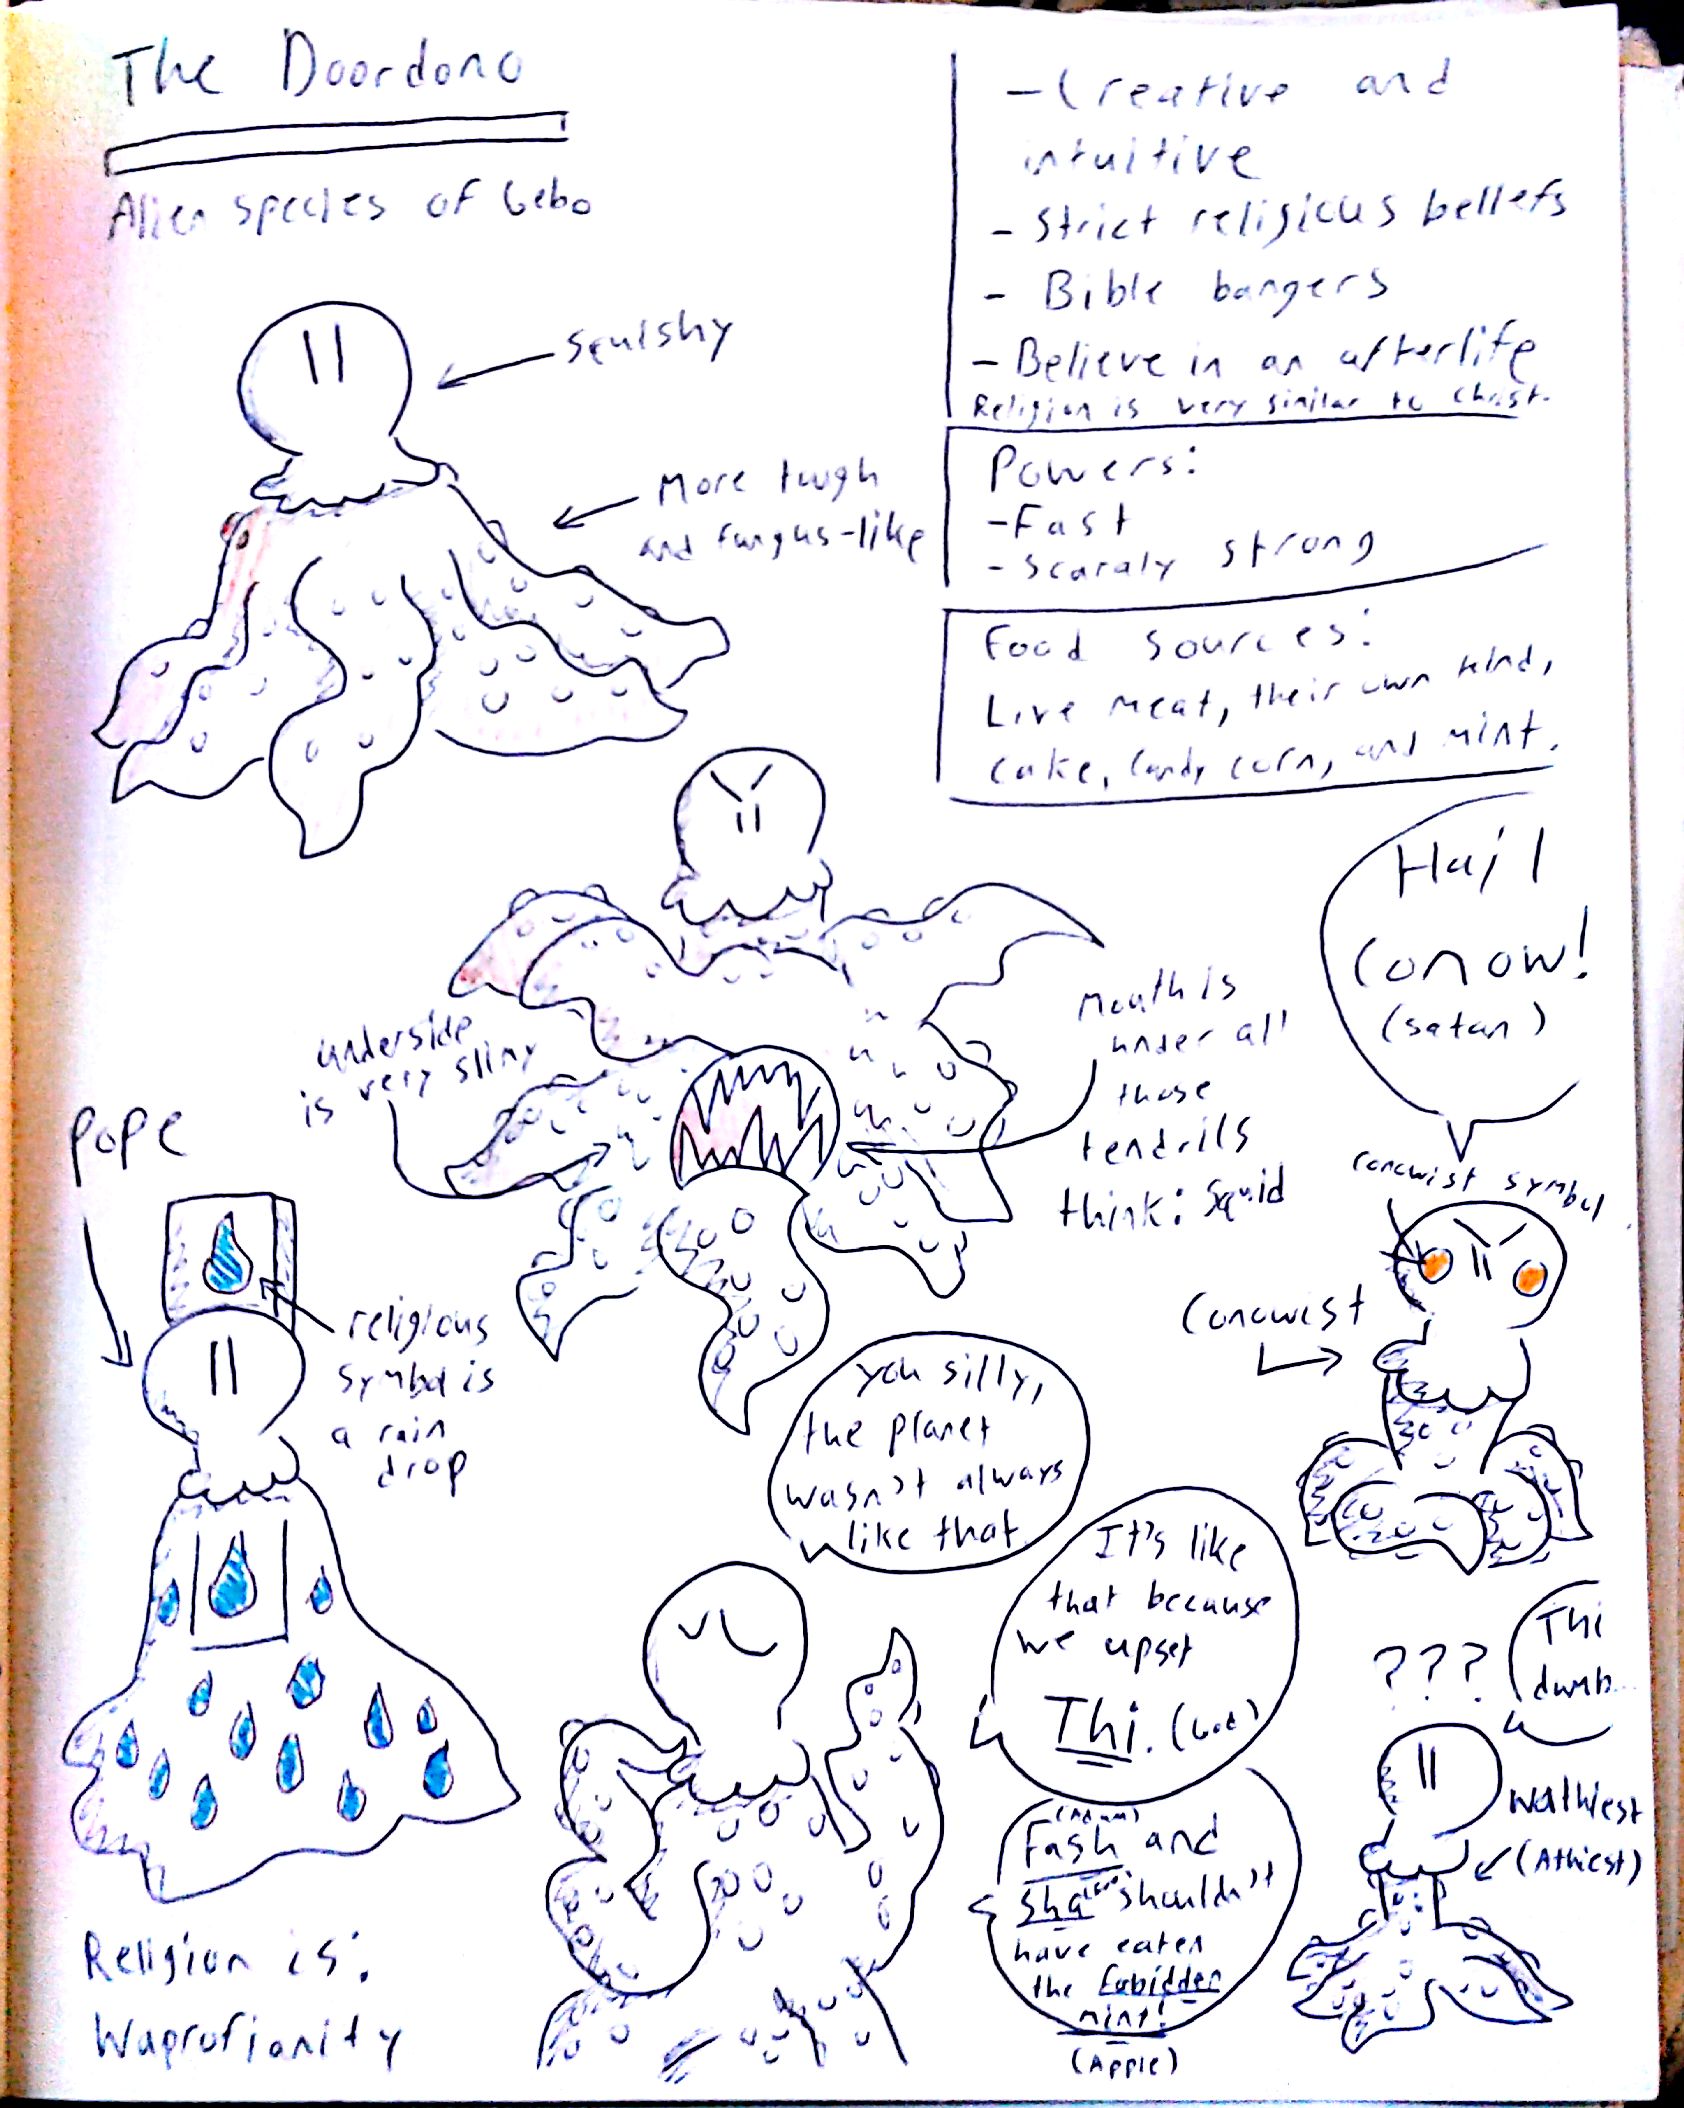 The Doordono
Alien species of Gebo
- Creative and
intuitive
- Strict religious beliefs
- Bible bangers
- Believe in an afterlife
Religion is very similar to Christ.
Powers:
- Fast
- Scaraly strong
Food sources:
Live meat, their own kind,
cake, candy corn, and mint.
squishy
More tough
and fungus-like
underside
is very slimy
Mouth is
under all
those
tendrils
think: squid
Hail
Conow!
(satan)
Conowist symbol
Conowist
Pope
religious
symbol is
a rain
drop
you silly,
the planet
wasn't always
like that
It's like
that because
we upset
Thi. (God)
(Adam)
Fash and
Sha shouldn't
have eaten
the forbidden
mint!
(Apple)
???
Thi
dumb...
Wathiest
(Athiest)
Religion is:
Waprofianity